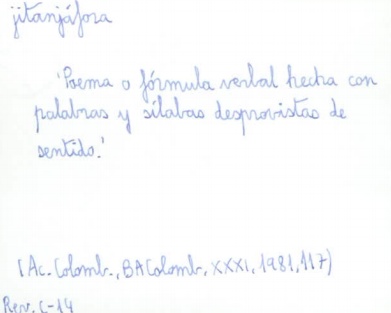 jitanjáfora
'Poema o fórmula verbal hecha con
palabras y sílabas desprovistas de
sentido.'
(Ac. Colomb., BAColomb, XXXI, 1981, 117)
Rev. C-14